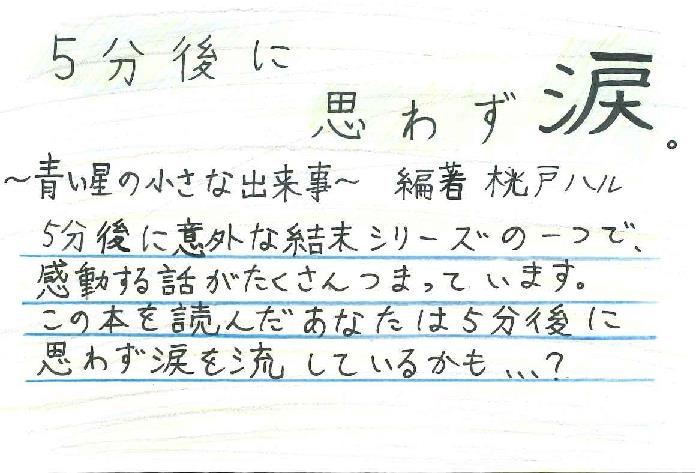 5分後に
思わず涙。
~青い星の小さな出来事~ 編著 桄戸ハル
5分後に意外な結末シリーズの一つで、
感動する話がたくさんつまっています。
この本を読んだあなたは5分後に
思わず涙を流しているかも...?